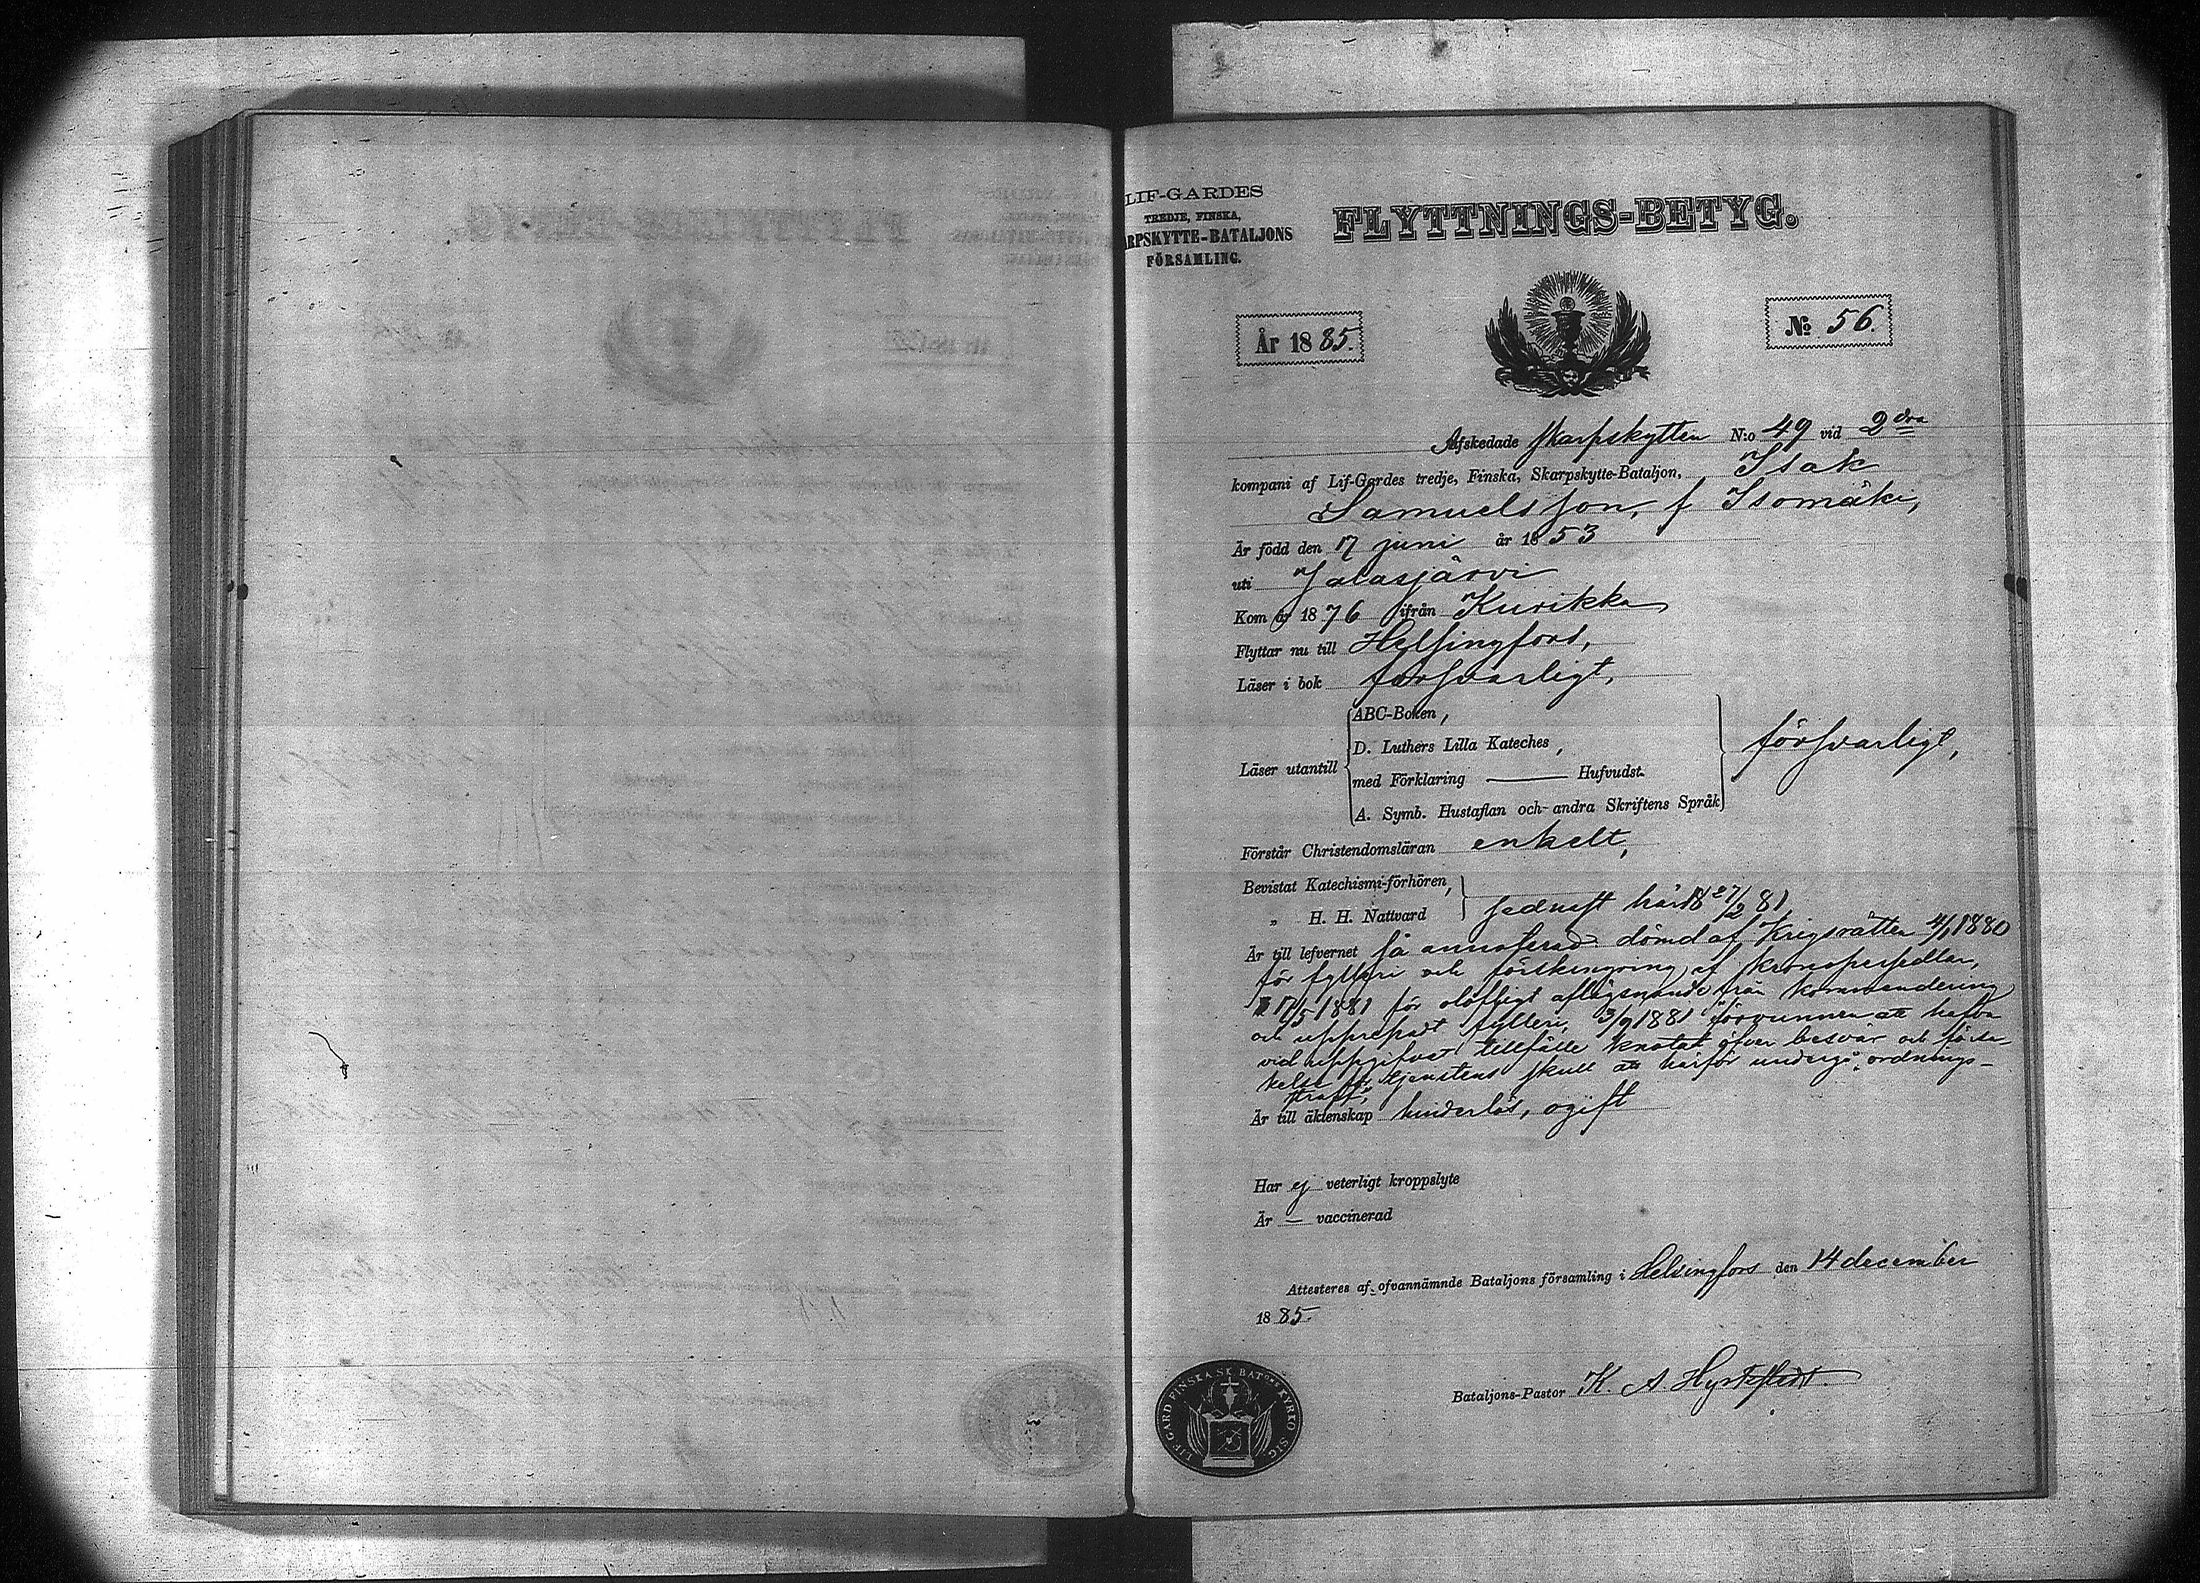 LIF-GARDES
TREDJE, FINSKA,
ARPSKYTTE-BATALJONS
FÖRSAMLING.
FLYTTNINGS-BETYG.
År 1885.
No 56.
Afskedade skarpskytten N:o 49 vid 2dra
kompani af Lif-Gardes tredje, Finska, Skarpskytte-Bataljon, Isak
Samuelsson, f Isomäki,
Är född den 17 juni år 1853
uti Jalasjärvi
Kom år 1876 ifrån Kurikka
Flyttar nu till Helsingfors,
Läser i bok försvarligt,
ABC-Boken,
D. Luthers Lilla Kateches,
Läser utantill försvarligt,
med Förklaring ——— Hufvudst.
A. Symb. Hustaflan och andra Skriftens Språk
Förstår Christendomsläran enkelt,
Bevistat Katechismi-förhören,
„ H. H. Nattvard senast här 27/2 81
Är till lefvernet så annoterad: dömd af Krigsrätten 4/1 1880
för fylleri och förskingring af kronopersedlar,
17/5 1881 för olofligt aflägsnande från kommendering
och upprepadt fylleri, 3/9 1881 förvunnen att hafva
vid uppgifvet tillfälle knotat öfver besvär och försa-
kelse för tjenstens skull att härför undergå ordnings-
straff,
Är till äktenskap hinderlös, ogift
Har ej veterligt kroppslyte
Är — vaccinerad
Attesteres af ofvannämnde Bataljons församling i Helsingfors den 14 december
1885.
Bataljons-Pastor K. A. Hyrkstedt
LIF-GARD FINSKA SK BATns KYRKO SIG.